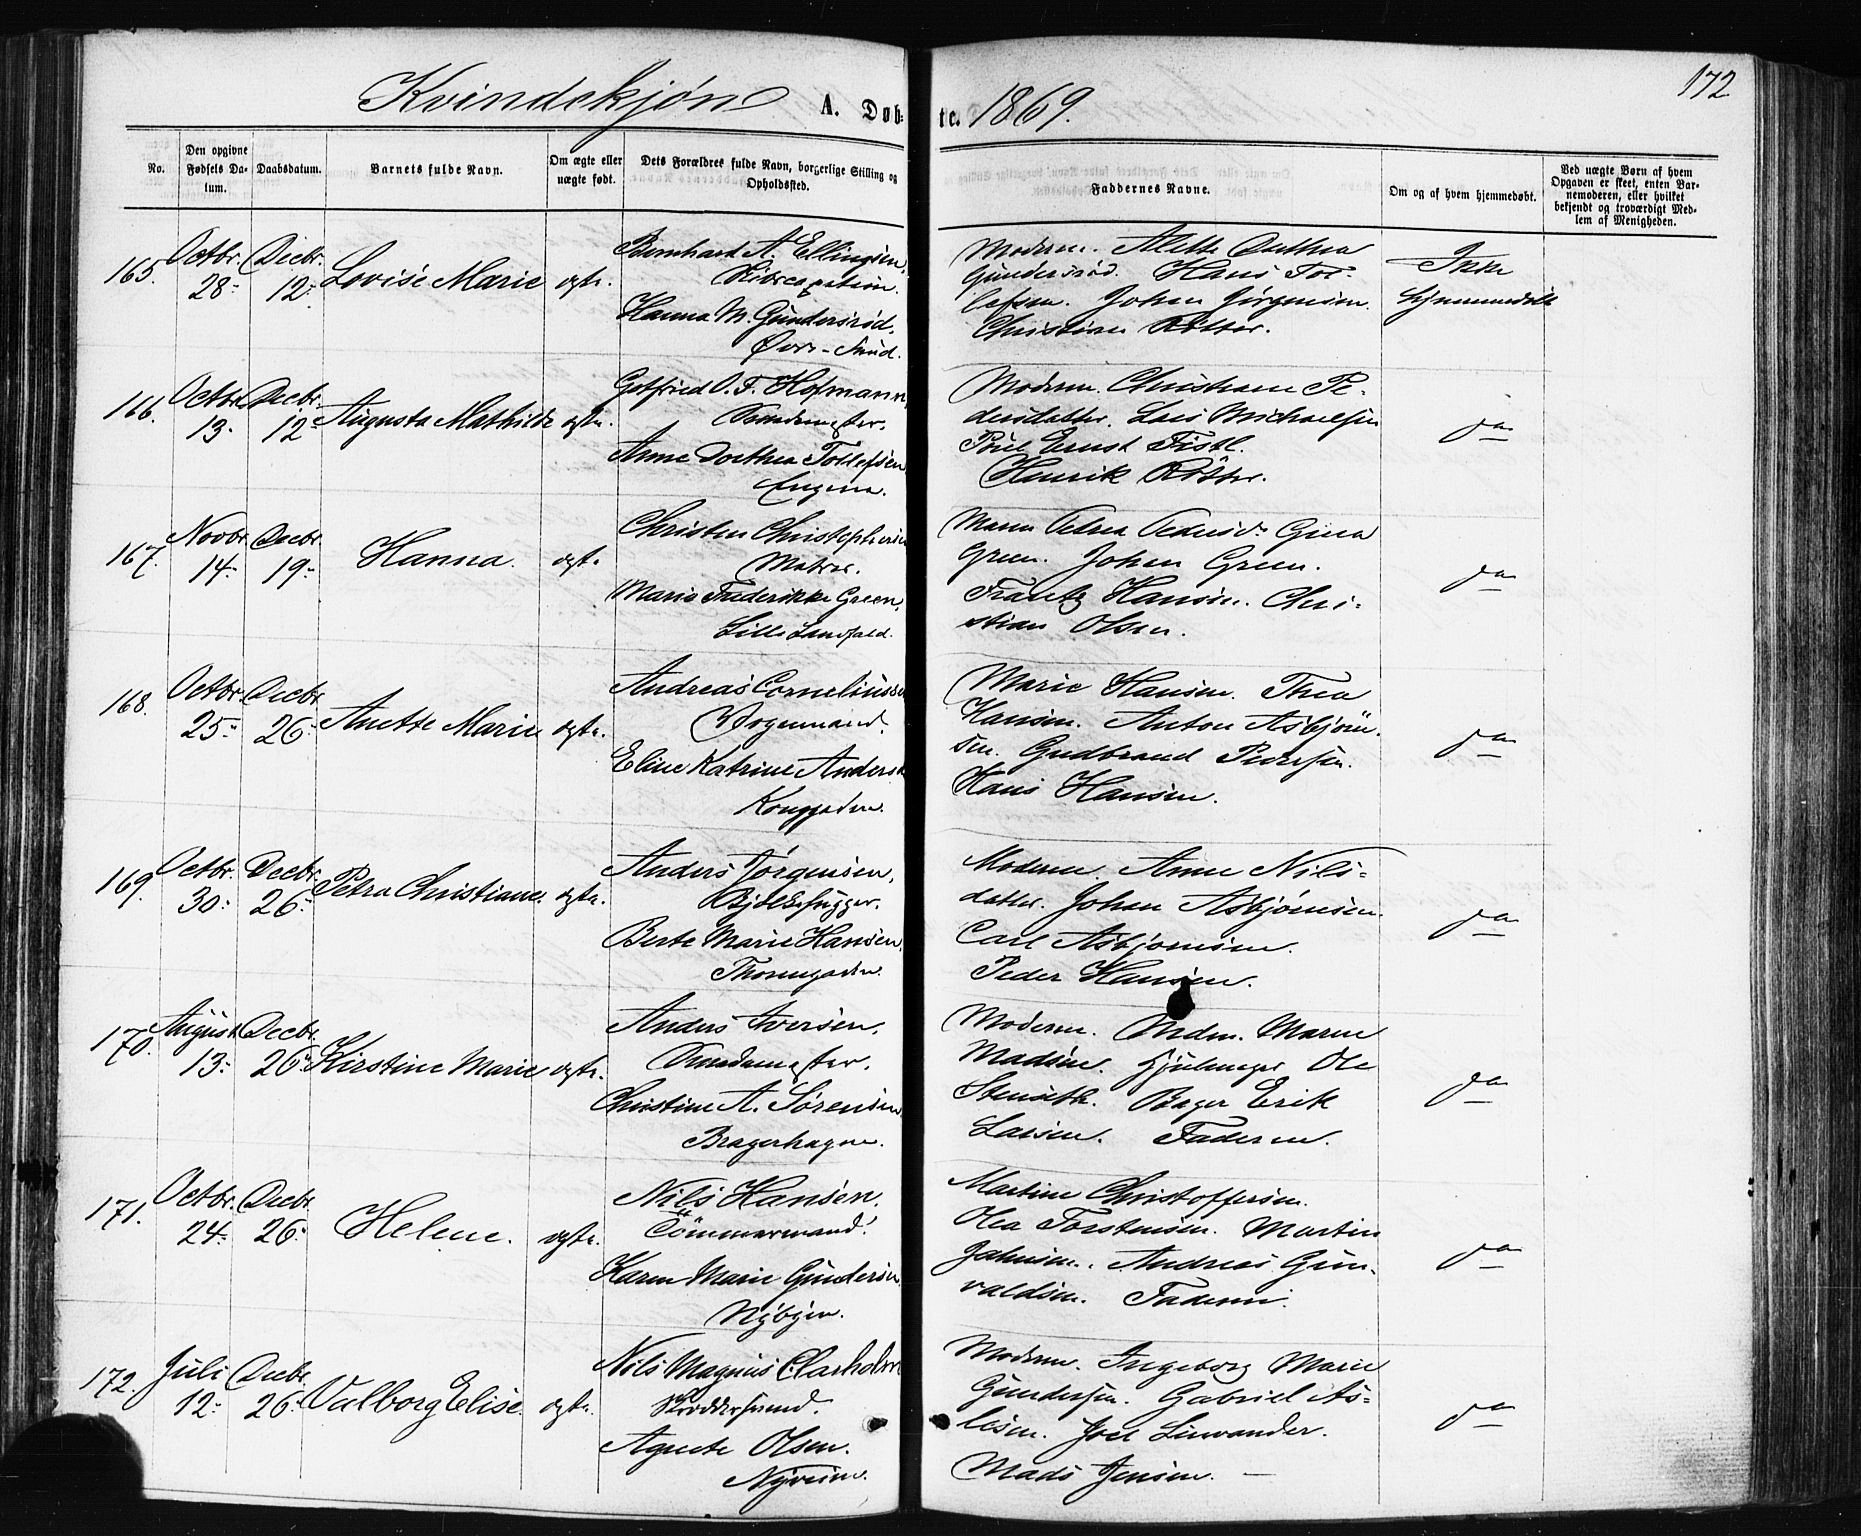 Kvindekjøn A. Døb- te. 1869. 172
No. Den opgivne Fødsels Datum. Daabsdatum. Barnets fulde Navn. Om ægte eller uægte født. Dets Forældres fulde Navn, borgerlige Stilling og Opholdssted. Faddernes Navne. Om og af hvem hjemmedøbt. Ved uægte Børn af hvem Opgaven er skeet, enten Barnemoderen, eller hvilket bekjendt og troværdigt Medlem af Menigheden.
165. Octbr. 28- Decbr. 12- Lovise Marie ægte.
Bernhard A. Ellingsen,
Hanna M. Gundersrød,
Moderen. Alette Dorthea
Gundersrød. Hans Tol-
lefsen. Johan Jørgensen
Christian Rötter.
Ikke
hjemmedøbt
166. Octbr. 13- Decbr. 12- Augusta Mathilde ægte.
Gotfried O. F. Hofmann,
Svendemester,
Anne Dorthea Tollefsen
Engene.
Moderen. Christiane Pe-
dersdatter. Lars Michaelsen
Poul Ernst Fistl.
Henrik Rötter.
do
167. Novbr. 14- Decbr. 19- Hanna. ægte.
Christen Christophersen
Matros.
Maria Frederikke Green,
Lille Landfald.
Maren Petrea Pedersdr. Gina
Green. Johan Green.
Frantz Hansen. Chri-
stian Olsen.
do
168. Octbr. 25- Decbr. 26- Anette Marie ægte.
Andreas Corneliussen
Vognmand.
Eline Katrine Anders
Konggaden.
Marie Hansen. Thea
Hansen. Anton Asbjørn-
sen. Gudbrand Pedersen.
Hans Hansen.
do
169. Octbr. 30- Decbr. 26- Petra Christiane. ægte.
Anders Jørgensen,
Bjelkehugger.
Berte Marie Hansen,
Thornegaden.
Moderen. Anne Nils-
datter. Johan Asbjørnsen.
Carl Asbjørnsen.
Peder Hansen.
do
170. August 13- Decbr. 26- Kirstine Marie ægte.
Anders Iversen,
Svendemester.
Christine A. Sørensen
Bragerhagen.
Moderen. Mdm. Maren
Madsen. Hjulmager Ole
Stenseth. Bager Erik
Larsen. Faderen.
do
171. Octbr. 24- Decbr. 26- Helene. ægte.
Nils Hansen,
Tømmermand.
Karen Marie Gundersen,
Nybyen.
Martine Christoffersen.
Olea Torstensen. Martin
Johnsen. Andreas Gun-
valdsen. Faderen.
do
172. Juli 12- Decbr. 26- Valborg Elise. ægte.
Nils Magnus Clarholm
Skræddersvend.
Agnete Olsen.
Nyveien.
Moderen. Ingeborg Marie
Gundersen. Gabriel As-
lesen. Joel Linvander.
Mads Jensen. —
do